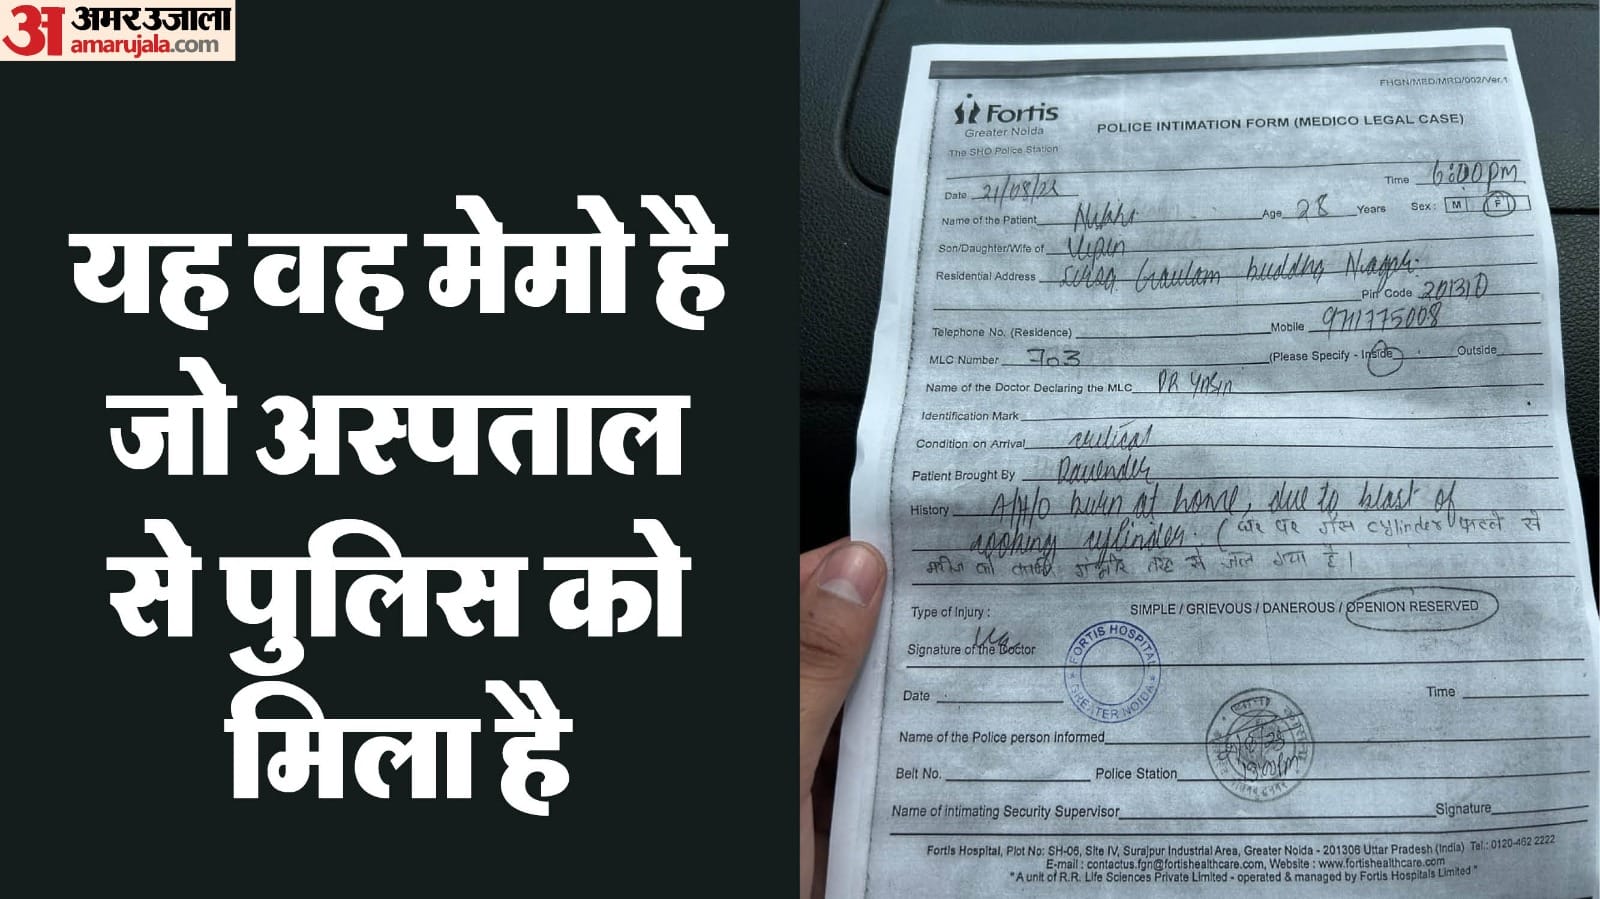 अमर उजाला
amarujala.com
यह वह मेमो है
जो अस्पताल
से पुलिस को
मिला है
FHGN/MED/MRD/002/Ver.1
Fortis
Greater Noida
POLICE INTIMATION FORM (MEDICO LEGAL CASE)
The SHO Police Station
Date 21/08/25 Time 6:00 pm
Name of the Patient Nikki Age 28 Years Sex: M F
Son/Daughter/Wife of Vipin
Residential Address Gautam buddha Nagar.
Pin Code 201310
Telephone No. (Residence) Mobile 9711775008
MLC Number 703 (Please Specify - Inside Outside
Name of the Doctor Declaring the MLC DR
Identification Mark
Condition on Arrival critical
Patient Brought By Davender
History A/H/O burn at home, due to blast of
cooking cylinder. (घर पर गैस cylinder फटने से
मरीज को काफी गम्भीर तरह से जल गया है।
Type of Injury : SIMPLE / GRIEVOUS / DANEROUS / OPENION RESERVED
Signature of the Doctor
FORTIS HOSPITAL
GREATER NOIDA
Date Time
Name of the Police person Informed
Belt No. Police Station
Name of intimating Security Supervisor Signature
Fortis Hospital, Plot No: SH-06, Site IV, Surajpur Industrial Area, Greater Noida - 201306 Uttar Pradesh (India) Tel.: 0120-462 2222
E-mail : contactus.fgn@fortishealthcare.com, Website : www.fortishealthcare.com
"A unit of R.R. Life Sciences Private Limited - operated & managed by Fortis Hospitals Limited"